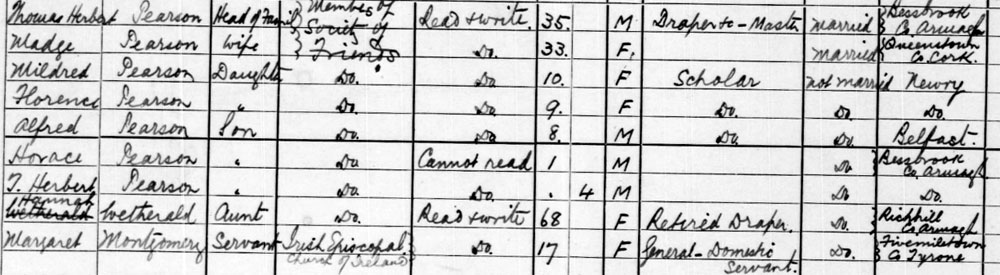 Thomas Herbert Pearson Head of Family Member of Society of Friends Read & write 35. M Draper &c - Master married Bessbrook Co. Armagh
Madge Pearson Wife Do. 33. F. married Queenstown Co. Cork.
Mildred Pearson Daughter Do. Do. 10. F Scholar not married Newry
Florence Pearson " Do. Do. 9. F Do. Do. Do.
Alfred Pearson Son Do. Do. 8. M Do. Do. Belfast.
Horace Pearson " Do Cannot read 1 M Do Bessbrook Co. Armagh
T. Herbert Pearson " Do. Do. 4 M Do Do.
Hannah Wetherald Wetherald Aunt Do. Read & write 68 F Retired Draper. Do. Richhill Co. Armagh
Margaret Montgomery Servant Irish Episcopal Church of Ireland Do. 17 F General - Domestic Servant. Do. Fivemiletown Co Tyrone